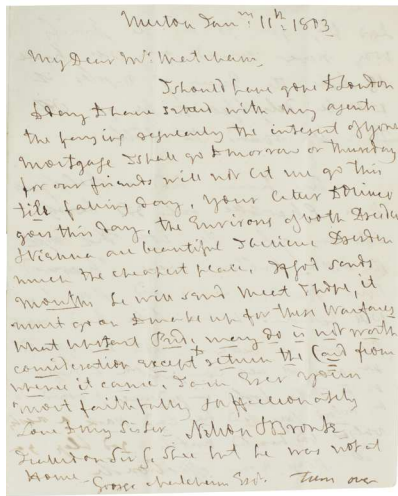 Merton Jany. 11th. 1803
My Dear Mr. Matcham,
I should have gone to London
to day to have settled with my agent
the paying regularly the interest of your
mortgage I shall go to morrow or thursday
for our friends will not let me go this
till falling day, your letter to
goes this day, the Environs of both Dresden
& Vienna are beautiful I believe Dresden
much the cheapest place, If got sands
months he will send meet I hope, it
must go on to make up for these
what upstart Pride may do is not worth
consideration except return the Card from
whence it came, I am Ever yours
most faithfully & affectionately
Love to my Sister. Nelson & Bronte
I called on Sir G. Shee but he was not at
Home.
George Matcham Esqr. turn over